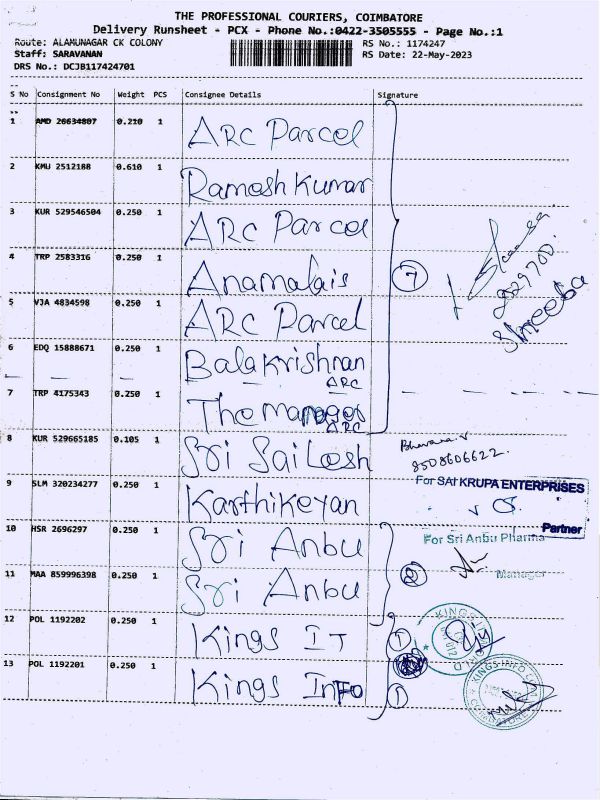 THE PROFESSIONAL COURIERS, COIMBATORE
Delivery Runsheet - PCX - Phone No.:0422-3505555 - Page No.:1
Route: ALAMUNAGAR CK COLONY RS No.: 1174247
Staff: SARAVANAN RS Date: 22-May-2023
DRS No.: DCJB117424701
S No Consignment No Weight PCS Consignee Details Signature
1 AMD 20634807 0.210 1 ARC Parcel
2 KMU 2512188 0.610 1 Ramesh Kumar
3 KUR 529546504 0.250 1 ARC Parcel
4 TRP 2583316 0.250 1 Anamalais
7
5 VJA 4834598 0.250 1 ARC Parcel
6 EDQ 15888671 0.250 1 Balakrishnan
ARC
7 TRP 4175343 0.250 1 The manager
ARC
8 KUR 529665185 0.105 1 Sri Sailesh
8508606622.
9 SLM 320234277 0.250 1 Karthikeyan
For SAI KRUPA ENTERPRISES
Partner
10 HSR 2696297 0.250 1 Sri Anbu
For Sri Anbu Pharma
Manager
11 MAA 859996398 0.250 1 Sri Anbu
2
12 POL 1192202 0.250 1 Kings IT
1
13 POL 1192201 0.250 1 Kings Info
1